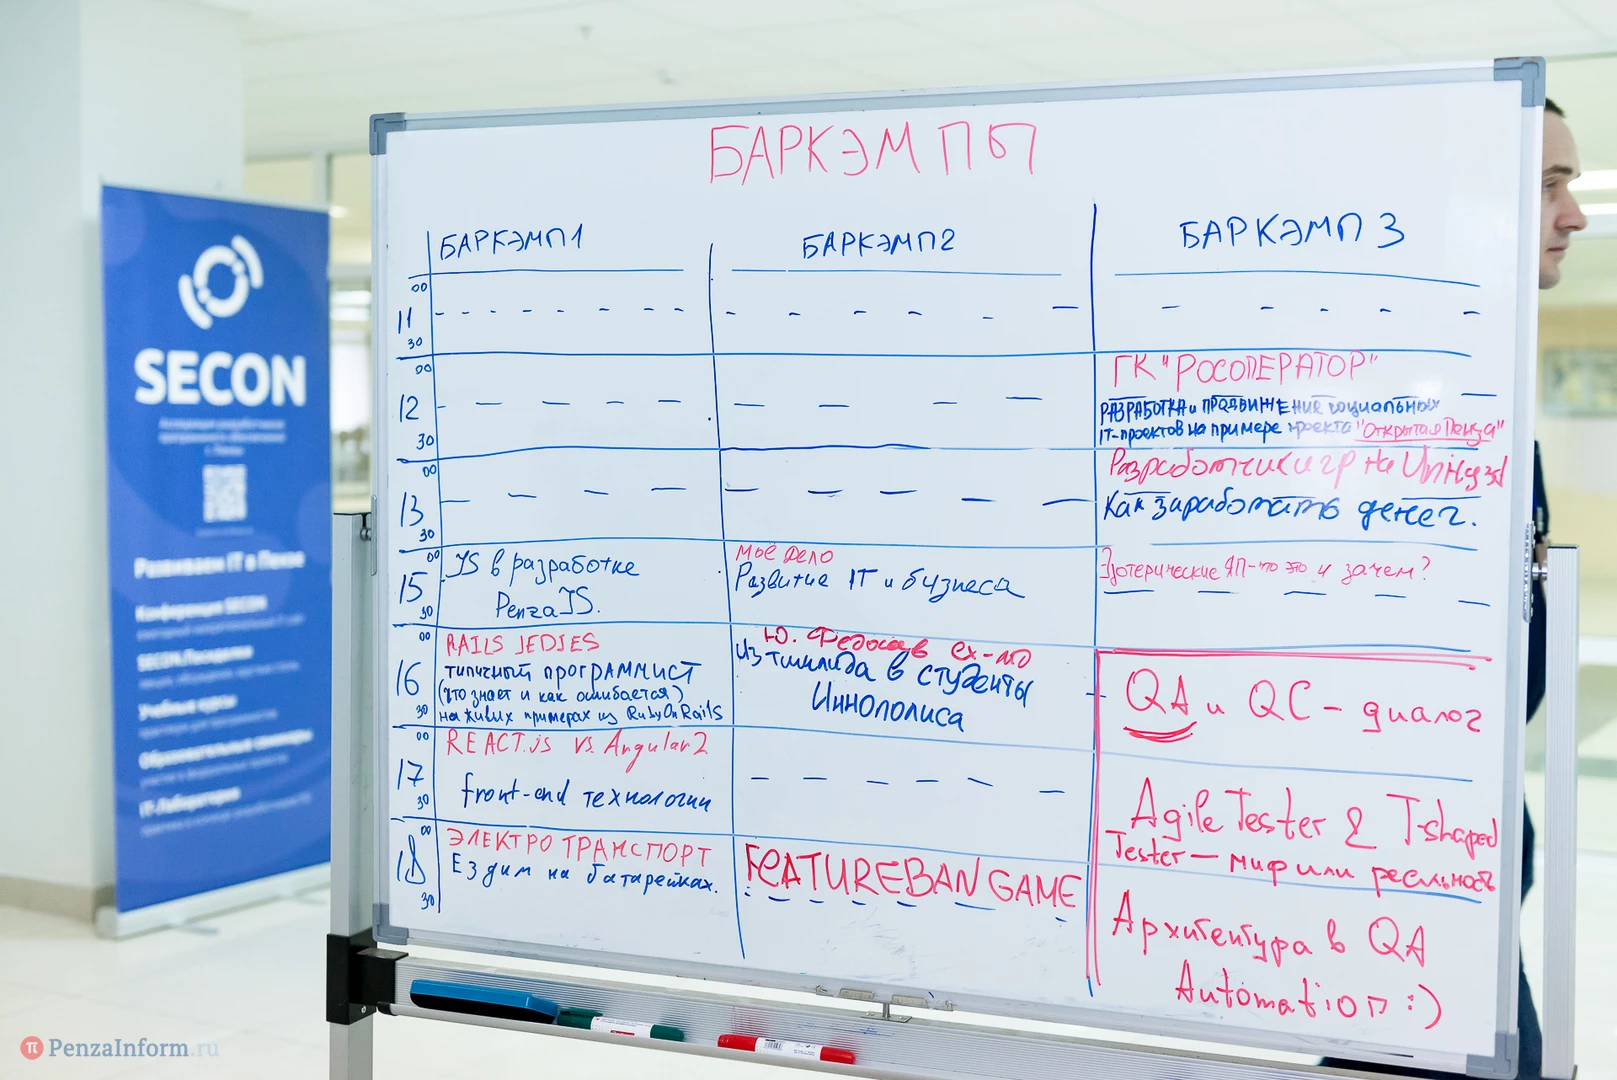 БАРКЭМПЫ
БАРКЭМП1
БАРКЭМП2
БАРКЭМП 3
11 00 30
- - - - - - - -
- - - - - -
- - - - -
12 00 30
- - - - - -
- - - -
ГК "РОСОПЕРАТОР"
РАЗРАБОТКА и ПРОДВИЖЕНИЕ социальных
IT-проектов на примере проекта "Открытая Пенза"
13 00 30
- - - -
- - - - -
Разработчики игр на Unity3d
Как заработать денег.
15 00 30
JS в разработке
PenzaJS.
Моё дело
Развитие IT и бизнеса
Эзотерические ЯП - что это и зачем?
16 00 30
RAILS JEDIES
типичный программист
(что знает и как ошибается)
на живых примерах из RubyOnRails
Ю. Федосав ex-mo
Из тимлида в студенты
Иннополиса
QA и QC - диалог
17 00 30
REACT.js vs. Angular2
front-end технологии
- - - - - -
Agile Tester & T-shaped
Tester — миф или реальность
18 00 30
ЭЛЕКТРОТРАНСПОРТ
Ездим на батарейках.
FEATUREBAN GAME
Архитектура в QA
Automation :)
SECON
Развиваем IT в Пензе
Конференция SECON
SECON.Посиделки
Учебные курсы
Образовательные семинары
IT-Лаборатория
PenzaInform.ru